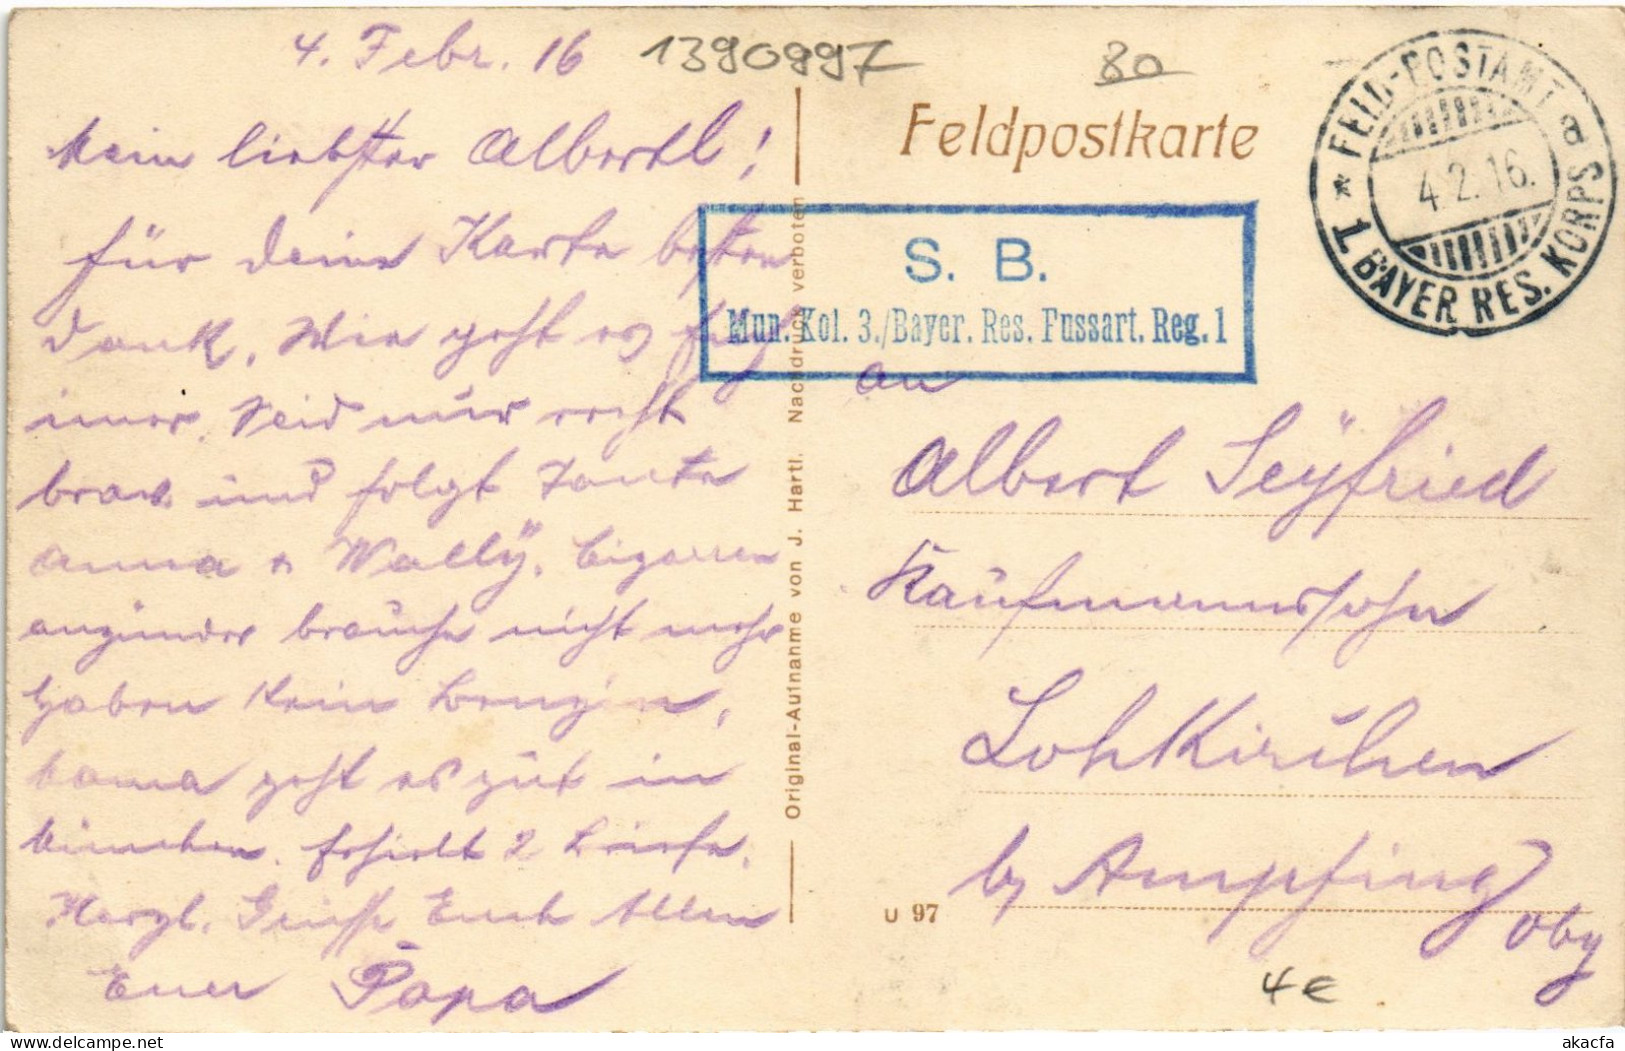 4. Febr. 16
1390997
80
Mein liebster Albertl!
für deine Karte besten
Dank. Wie geht es
immer. Seid nur recht
brav und folgt Tante
Anna u Wally. Cigarren
anzünder brauche nicht mehr
haben kein Benzin.
Mama geht es gut in
München. Erhielt 2 Briefe.
Herzl. Grüsse Euch Allen
Euer Papa
Original-Aufnahme von J. Hartl. Nachdruck verboten
Feldpostkarte
FELD-POSTAMT a
4.2.16.
* 1. BAYER RES. KORPS
S. B.
Mun. Kol. 3./Bayer. Res. Fussart. Reg. 1
An
Albert Seÿfried
Kaufmannssohn
Lohkirchen
by Ampfing
Oby
U 97
4€
akacfa